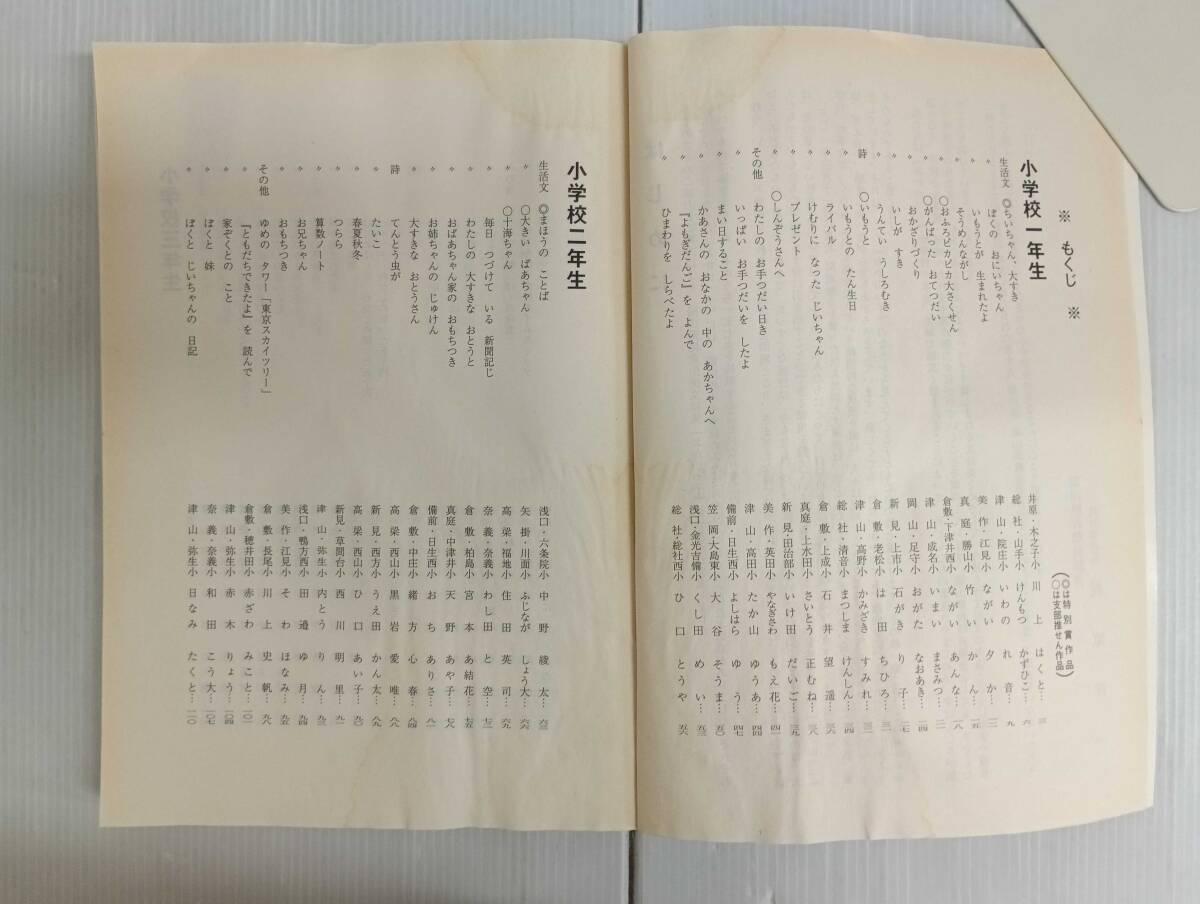 ※ もくじ ※
(◎は特別賞作品
○は支部推せん作品)
小学校一年生
生活文 ◎ちぃちゃん、大すき 井原・木之子小 川上 はくと… 三
〃 ぼくの おにいちゃん 総社・山手小 けんもつ かずひこ… 六
〃 いもうとが 生まれたよ 津山・院庄小 いわの れ音… 九
〃 そうめんながし 美作・江見小 ながい 夕か… 一二
〃 ○おふろピカピカ大さくせん 真庭・勝山小 竹い かん… 一五
〃 ○がんばった おてつだい 倉敷・下津井西小 ながい あんな… 一八
〃 おかざりづくり 津山・成名小 いまい まさみつ… 二一
〃 いしが すき 岡山・足守小 おがた なおあき… 二四
〃 うんてい うしろむき 新見・上市小 石がき り子… 二七
詩 ○いもうと 倉敷・老松小 は田 ちひろ… 三一
〃 いもうとの たん生日 津山・高野小 かみざき すみれ… 三二
〃 ライバル 総社・清音小 まつしま けんしん… 三四
〃 けむりに なった じいちゃん 倉敷・上成小 石井 望遥… 三六
〃 プレゼント 真庭・上水田小 さいとう 正むね… 三八
〃 ○しんぞうさんへ 新見・田治部小 いけ田 だいご… 三九
その他 わたしの お手つだい日き 美作・英田小 やなぎさわ もえ花… 四一
〃 いっぱい お手つだいを したよ 津山・高田小 たか山 ゆうあ… 四四
〃 まい日すること 備前・日生西小 よしはら ゆう… 四七
〃 かあさんの おなかの 中の あかちゃんへ 笠岡・大島東小 大谷 そうま… 五〇
〃 『よもぎだんご』を よんで 浅口・金光吉備小 くし田 めい… 五三
〃 ひまわりを しらべたよ 総社・総社西小 ひ口 とうや… 五六
小学校二年生
生活文 ◎まほうの ことば 浅口・六条院小 中野 綾太… 六三
〃 ○大きい ばあちゃん 矢掛・川面小 ふじなが しょう大… 六六
〃 ○十海ちゃん 高梁・福地小 住田 英司… 六九
〃 毎日 つづけて いる 新聞記じ 奈義・奈義小 わし田 と空… 七二
〃 わたしの 大すきな おとうと 倉敷・柏島小 宮本 あ結花… 七五
〃 おばあちゃん家の おもちつき 真庭・中津井小 天野 あや子… 七八
〃 お姉ちゃんの じゅけん 備前・日生西小 おち ありさ… 八一
〃 大すきな おとうさん 倉敷・中庄小 緒方 心春… 八四
詩 てんとう虫が 高梁・西山小 黒岩 愛唯… 八八
〃 たいこ 新見・西方小 うえ田 かん太… 八九
〃 春夏秋冬 高梁・西山小 ひ口 あい子… 九〇
〃 つらら 新見・草間台小 西川 明里… 九一
〃 算数ノート 津山・弥生小 内とう りん… 九三
〃 お兄ちゃん 浅口・鴨方西小 田邉 ゆ月… 九四
〃 おもちつき 美作・江見小 そわ ほなみ…
その他 ゆめの タワー「東京スカイツリー」 倉敷・長尾小 川上 史帆… 九八
〃 『ともだちできたよ』を 読んで 倉敷・穂井田小 赤ざわ みこと… 一〇一
〃 家ぞくとの こと 津山・弥生小 赤木 りょう… 一〇四
〃 ぼくと 妹 奈義・奈義小 和田 こう大… 一〇七
〃 ぼくと じいちゃんの 日記 津山・弥生小 日なみ たくと… 一一〇